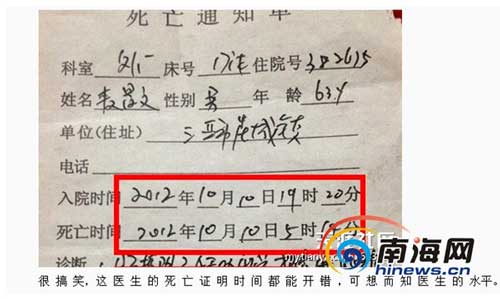 死亡通知单
科室 外一 床号 住院号 382675
姓名 性别 男 年龄 63岁
单位(住址) 三亚市崖城镇
电话
入院时间 2012年10月10日19时20分
死亡时间 2012年10月10日5时15分
诊断
南海网
hinews.cn
很搞笑,这医生的死亡证明时间都能开错,可想而知医生的水平。